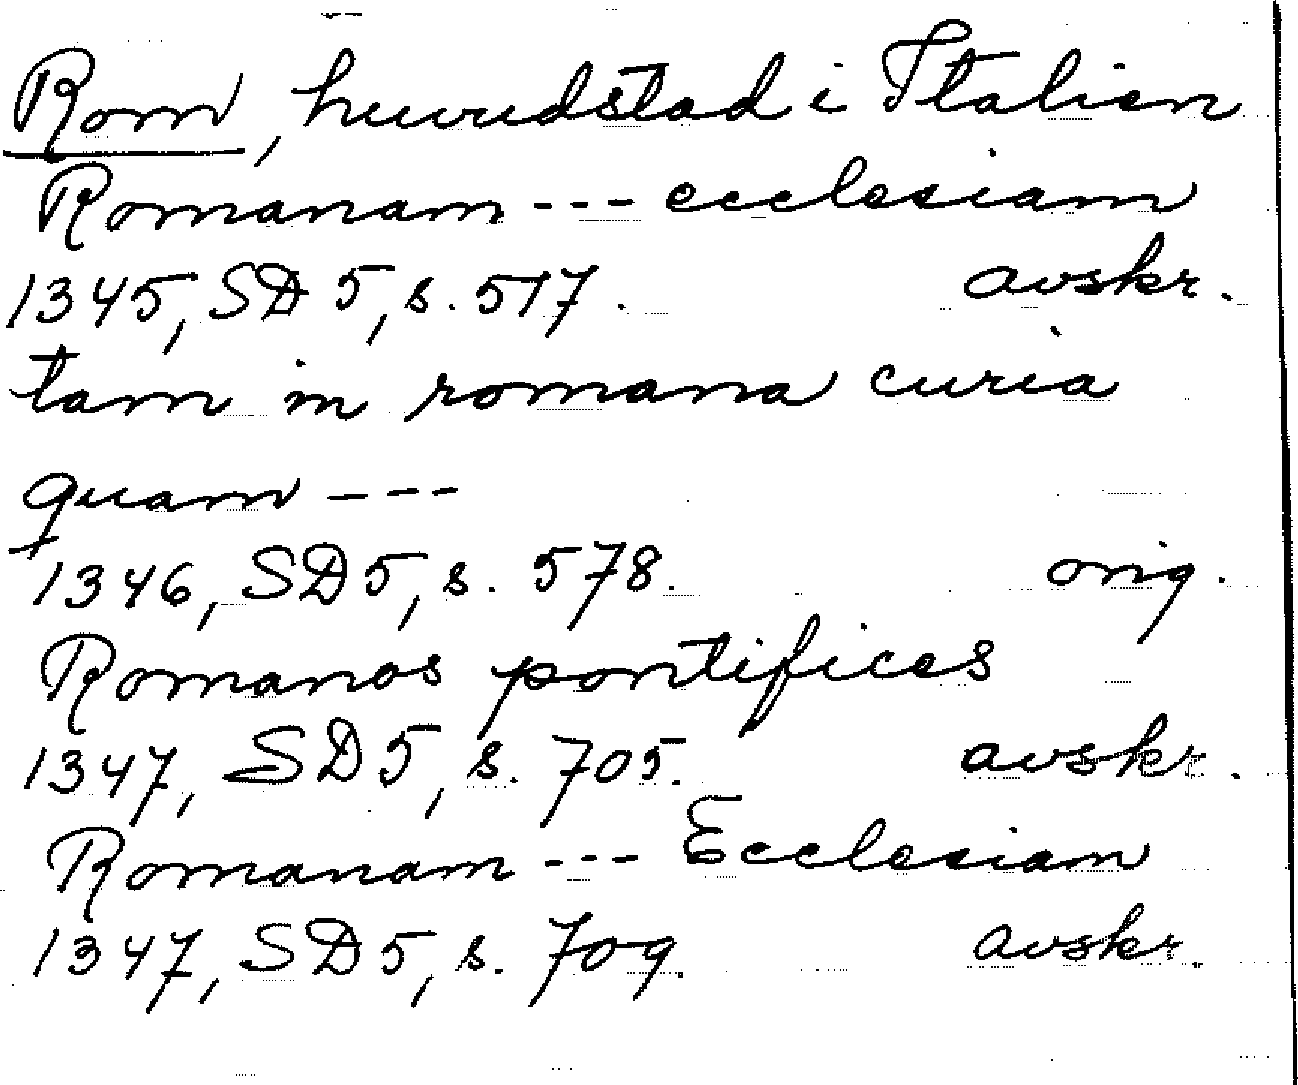 Rom, huvudstad i Italien
Romanam --- ecclesiam
1345, SD 5, s. 517. avskr.
tam in romana curia
quam ---
1346, SD 5, s. 578. orig.
Romanos pontifices
1347, SD 5, s. 705. avskr.
Romanam --- Ecclesiam
1347, SD 5, s. 709. avskr.